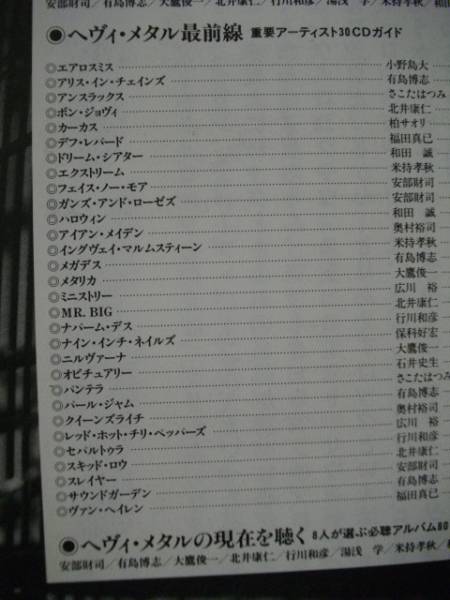 安部財司／有島博志／大鷹俊一／北井康仁／行川和彦／湯浅 学／米持孝秋／和田
◉ヘヴィ・メタル最前線 重要アーティスト30CDガイド
◎エアロスミス 小野島大
◎アリス・イン・チェインズ 有島博志
◎アンスラックス さこたはつみ
◎ボン・ジョヴィ 北井康仁
◎カーカス 柏サオリ
◎デフ・レパード 福田真已
◎ドリーム・シアター 和田 誠
◎エクストリーム 米持孝秋
◎フェイス・ノー・モア 安部財司
◎ガンズ・アンド・ローゼズ 安部財司
◎ハロウィン 和田 誠
◎アイアン・メイデン 奥村裕司
◎イングヴェイ・マルムスティーン 米持孝秋
◎メガデス 有島博志
◎メタリカ 大鷹俊一
◎ミニストリー 広川 裕
◎MR. BIG 北井康仁
◎ナパーム・デス 行川和彦
◎ナイン・インチ・ネイルズ 保科好宏
◎ニルヴァーナ 大鷹俊一
◎オビチュアリー 石井史生
◎パンテラ さこたはつみ
◎パール・ジャム 有島博志
◎クイーンズライチ 奥村裕司
◎レッド・ホット・チリ・ペッパーズ 広川 裕
◎セパルトゥラ 行川和彦
◎スキッド・ロウ 北井康仁
◎スレイヤー 安部財司
◎サウンドガーデン 有島博志
◎ヴァン・ヘイレン 福田真已
◉ヘヴィ・メタルの現在を聴く 8人が選ぶ必聴アルバム80
安部財司／有島博志／大鷹俊一／北井康仁／行川和彦／湯浅 学／米持孝秋／